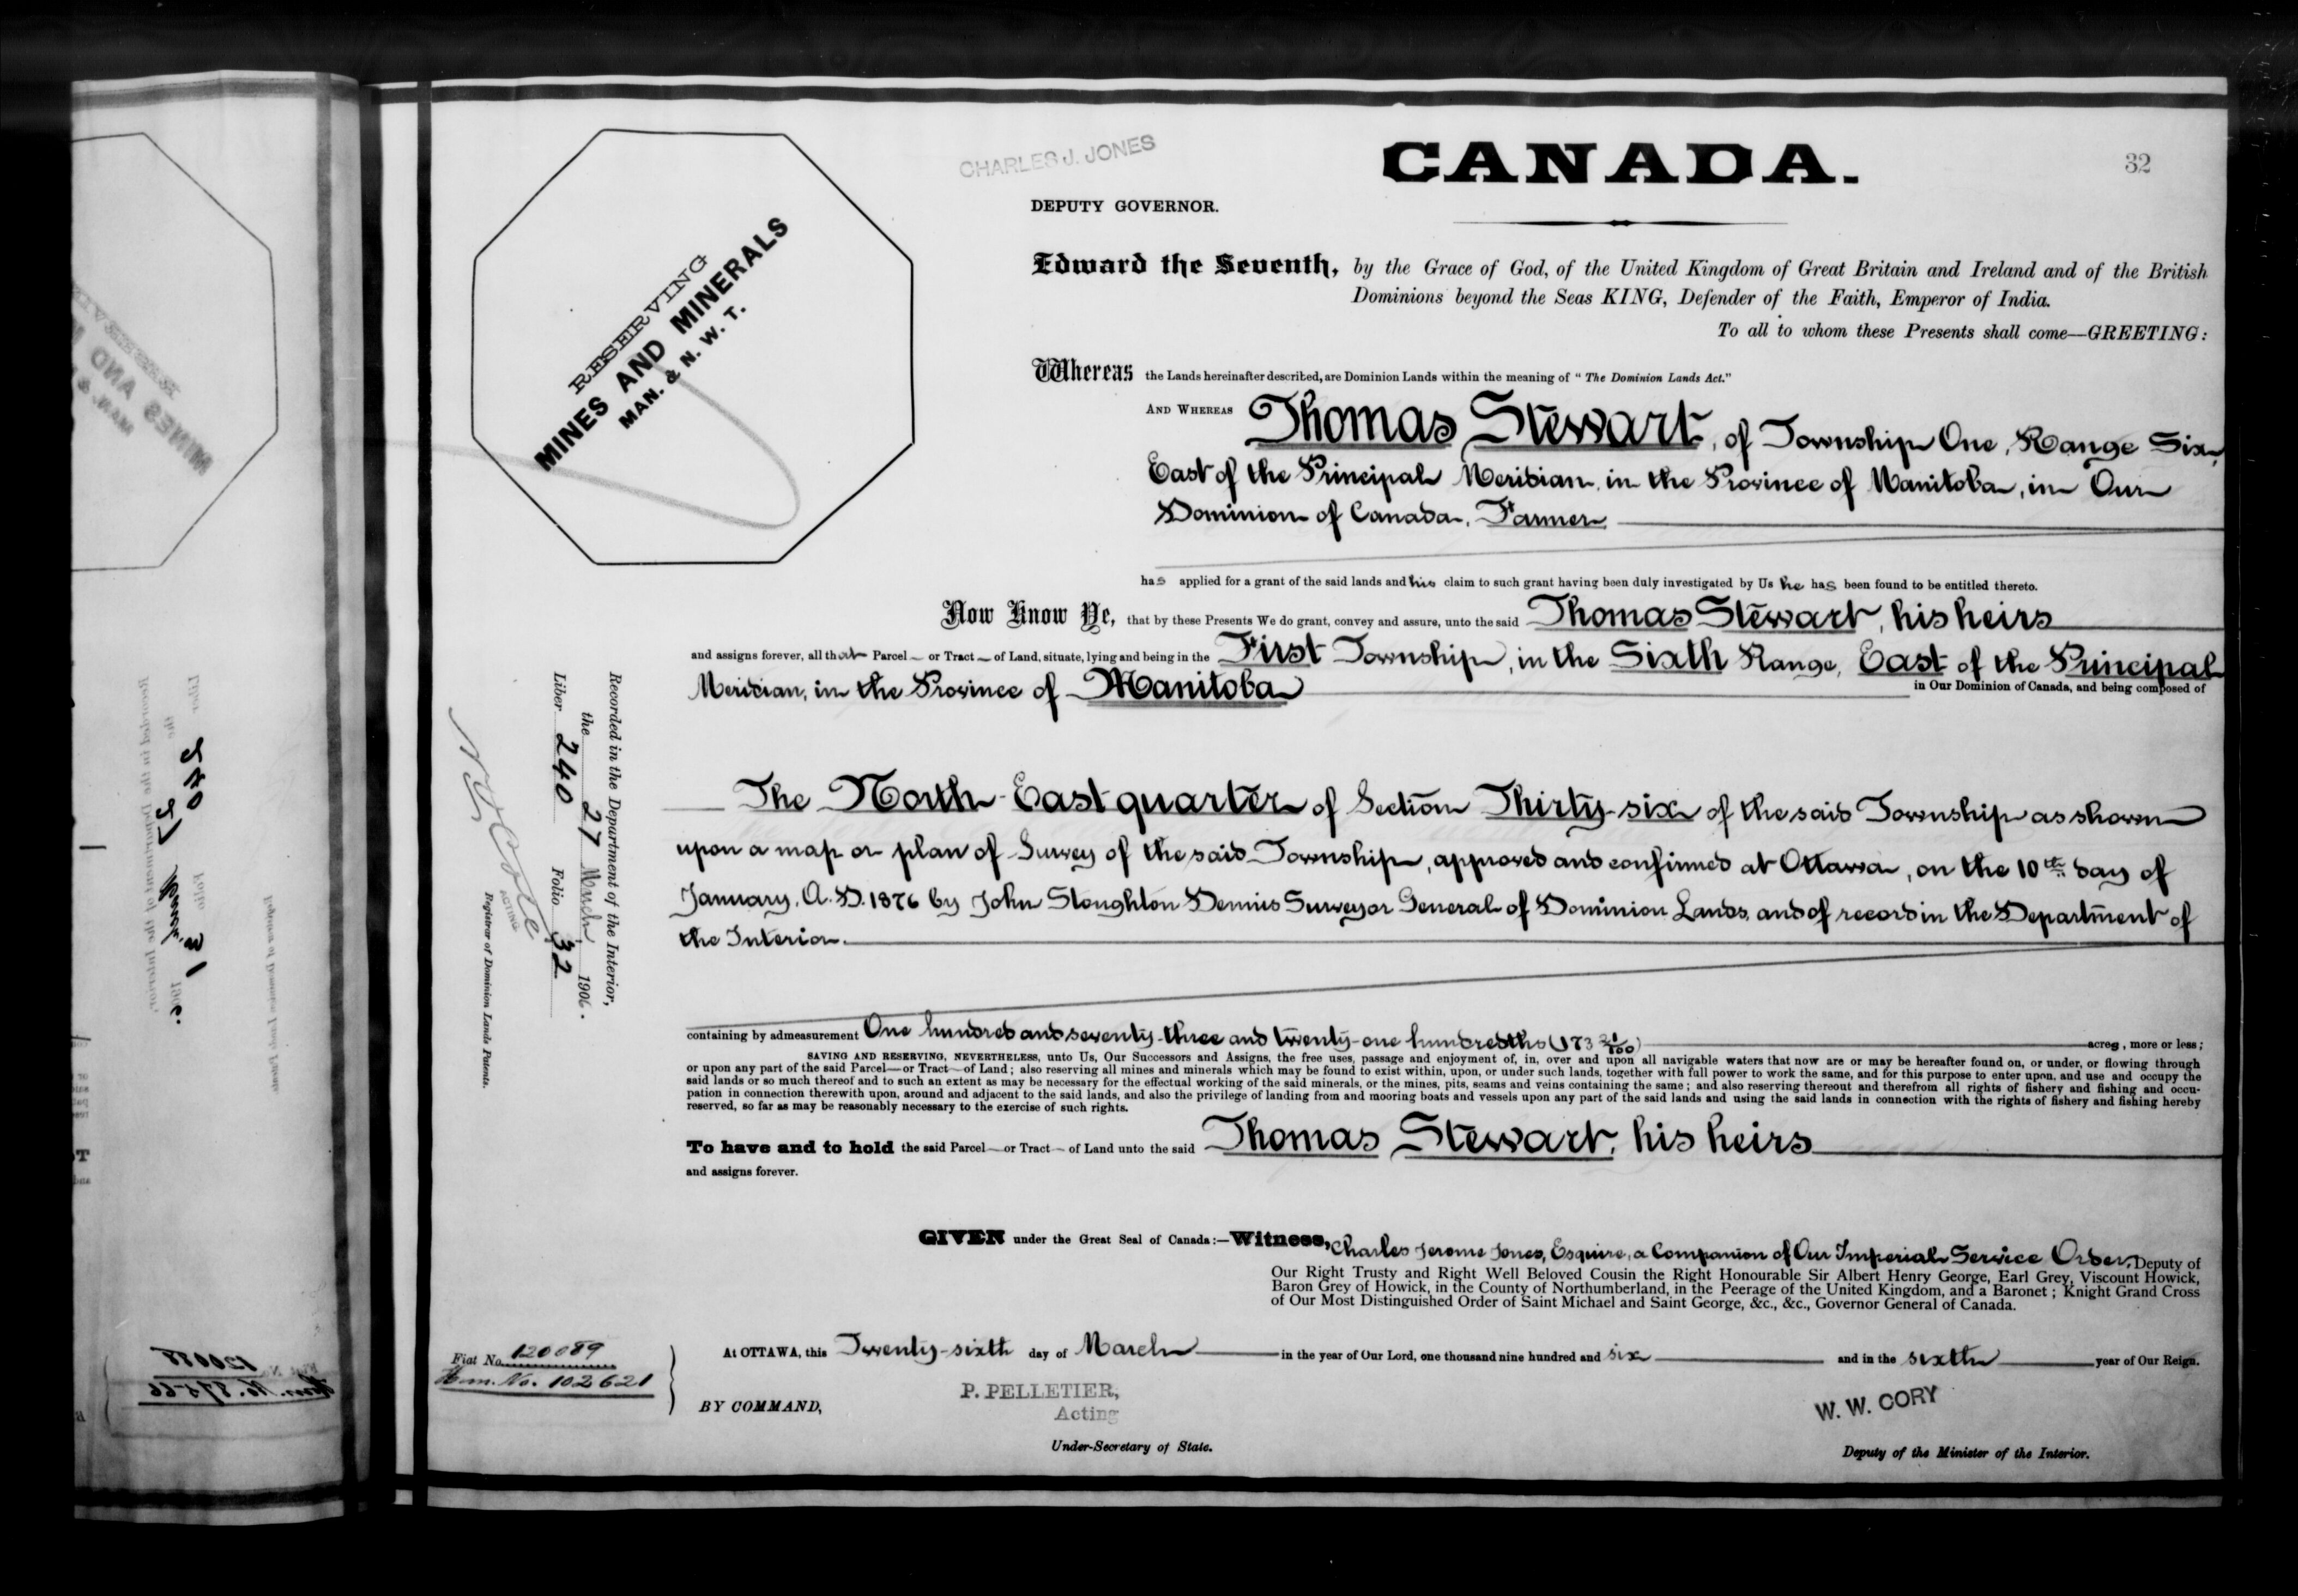 CHARLES J. JONES
CANADA.
32
DEPUTY GOVERNOR.
RESERVING
MINES AND MINERALS
MAN. & N. W. T.
Edward the Seventh, by the Grace of God, of the United Kingdom of Great Britain and Ireland and of the British
Dominions beyond the Seas KING, Defender of the Faith, Emperor of India.
To all to whom these Presents shall come—GREETING:
Whereas the Lands hereinafter described, are Dominion Lands within the meaning of "The Dominion Lands Act."
AND WHEREAS Thomas Stewart, of Township One, Range Six,
East of the Principal Meridian, in the Province of Manitoba, in Our
Dominion of Canada, Farmer
has applied for a grant of the said lands and his claim to such grant having been duly investigated by Us he has been found to be entitled thereto.
Now Know Ye, that by these Presents We do grant, convey and assure, unto the said Thomas Stewart, his heirs
and assigns forever, all that Parcel or Tract of Land, situate, lying and being in the First Township, in the Sixth Range, East of the Principal
Meridian, in the Province of Manitoba
in Our Dominion of Canada, and being composed of
The North-East quarter of Section Thirty-six of the said Township as shown
upon a map or plan of Survey of the said Township, approved and confirmed at Ottawa, on the 10th day of
January, A.D. 1876 by John Stoughton Dennis Surveyor General of Dominion Lands, and of record in the Department of
the Interior.
Recorded in the Department of the Interior,
the 27 March 1906.
Liber 240 Folio 32
ACTING
Registrar of Dominion Lands Patents.
containing by admeasurement One hundred and seventy-three and twenty-one hundredths (173 21/100) acres, more or less;
SAVING AND RESERVING, NEVERTHELESS, unto Us, Our Successors and Assigns, the free uses, passage and enjoyment of, in, over and upon all navigable waters that now are or may be hereafter found on, or under, or flowing through
or upon any part of the said Parcel—or Tract—of Land; also reserving all mines and minerals which may be found to exist within, upon, or under such lands, together with full power to work the same, and for this purpose to enter upon, and use and occupy the
said lands or so much thereof and to such an extent as may be necessary for the effectual working of the said minerals, or the mines, pits, seams and veins containing the same; and also reserving thereout and therefrom all rights of fishery and fishing and occu-
pation in connection therewith upon, around and adjacent to the said lands, and also the privilege of landing from and mooring boats and vessels upon any part of the said lands and using the said lands in connection with the rights of fishery and fishing hereby
reserved, so far as may be reasonably necessary to the exercise of such rights.
To have and to hold the said Parcel—or Tract—of Land unto the said Thomas Stewart, his heirs
and assigns forever.
GIVEN under the Great Seal of Canada:—Witness, Charles Jerome Jones, Esquire, a Companion of Our Imperial Service Order, Deputy of
Our Right Trusty and Right Well Beloved Cousin the Right Honourable Sir Albert Henry George, Earl Grey, Viscount Howick,
Baron Grey of Howick, in the County of Northumberland, in the Peerage of the United Kingdom, and a Baronet; Knight Grand Cross
of Our Most Distinguished Order of Saint Michael and Saint George, &c., &c., Governor General of Canada.
Fiat No. 120089
Hm. No. 102621
At OTTAWA, this Twenty-sixth day of March in the year of Our Lord, one thousand nine hundred and six and in the sixth year of Our Reign.
BY COMMAND,
P. PELLETIER,
Acting
Under-Secretary of State.
W. W. CORY
Deputy of the Minister of the Interior.